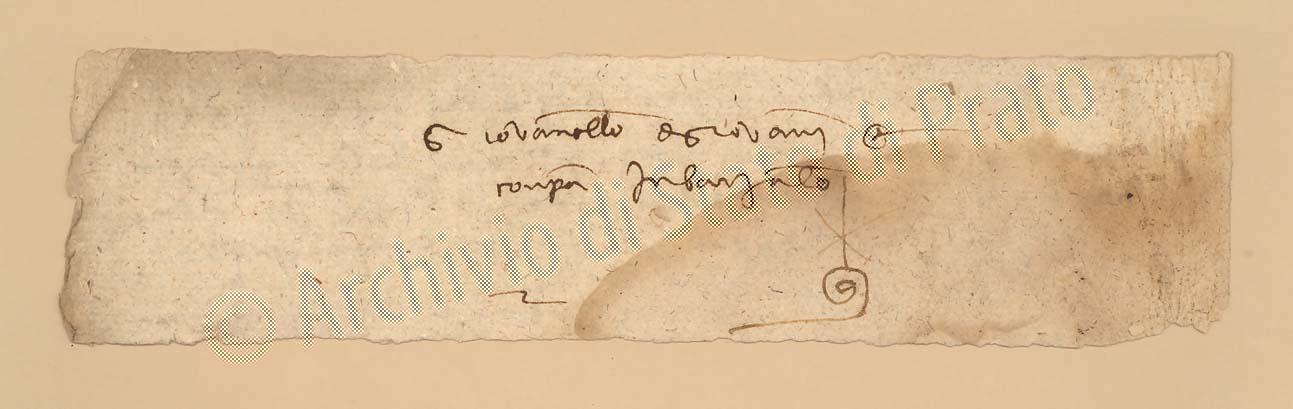 Giovanello digiovani &
conpa Inbarzalo
© Archivio di Stato di Prato